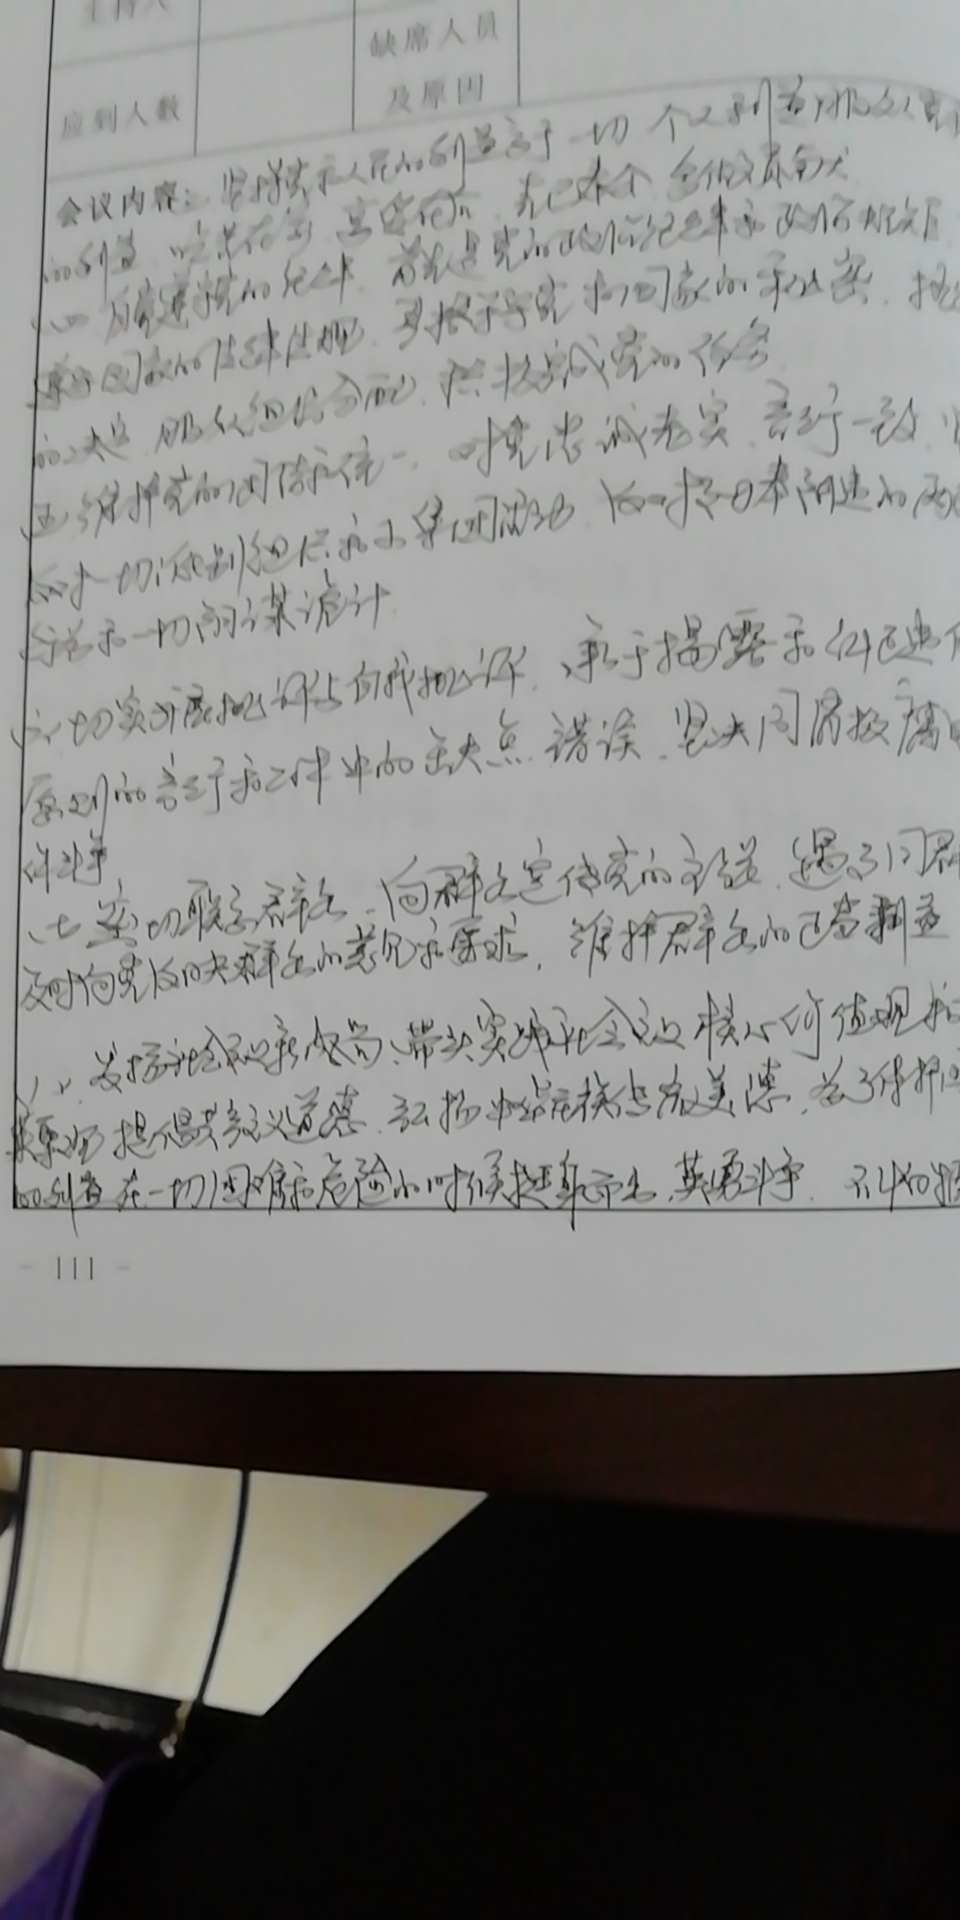 主持人
缺席人员
应到人数 及原因
会议内容: 坚持党和人民的利益高于一切 个人利益服从党和
的利益 吃苦在前 享受在后 克己奉公 多做贡献
四 自觉遵守党的纪律 首先是党的政治纪律和政治规矩
国家的法律法规 严格保守党和国家的秘密 执
的决定 服从组织分配 积极完成党的任务
五 维护党的团结和统一 对党忠诚老实 言行一致
反对一切派别组织和小集团活动 反对阳奉阴违的两
行为和一切阴谋诡计
六 切实开展批评与自我批评 勇于揭露和纠正违
原则的言行和工作中的缺点 错误 坚决同消极腐
作斗争
七 密切联系群众 向群众宣传党的主张 遇事同群
及时向党反映群众的意见和要求 维护群众的正当利益
八 发扬社会主义新风尚、带头实践社会主义核心价值观和
提倡共产主义道德 弘扬中华民族传统美德 为了保护
的利益 在一切困难和危险的时候挺身而出 英勇斗争 不怕牺
111